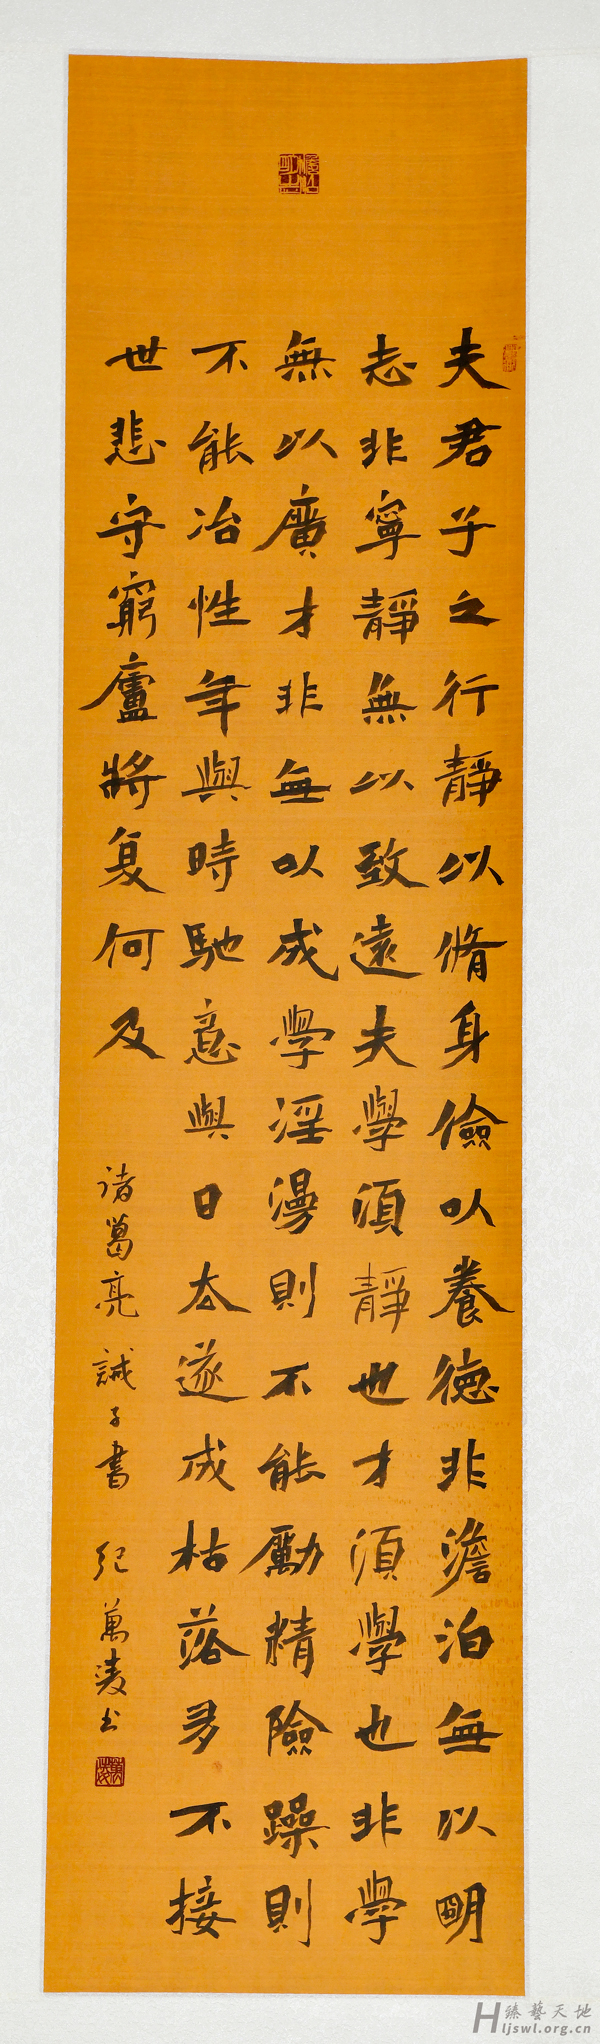 夫君子之行靜以脩身儉以養德非澹泊無以明
志非寧靜無以致遠夫學湏靜也才湏學也非學
無以廣才非無以成學淫漫則不能勵精險躁則
不能冶性年與時馳意與日去遂成枯落多不接
世悲守窮廬將复何及
諸葛亮 誡子書 紀萬凌书
臻藝天地
Hljswl.org.cn